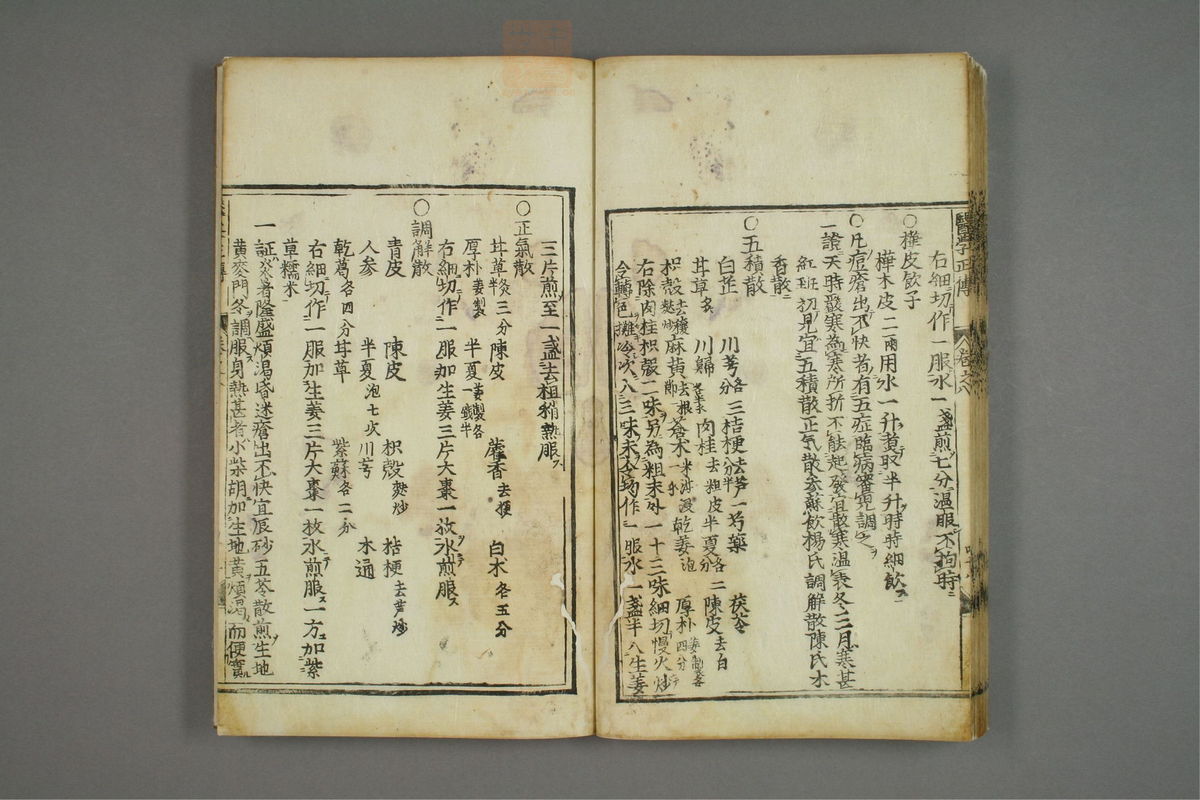 醫學正傳 卷
右細切作一服水一盞煎七分溫服不拘時ニ
○樺皮飲子
樺木皮二兩用水一升煑取半升時時細飲
○凡痘瘡出不快者有五症臨病審究調之
一證天時嚴寒為寒所折不能起發宜散寒溫表冬三月寒甚
紅班初見宜五積散正気散参蘇飲楊氏調解散陳氏木
香散
○五積散
白芷 川芎各三分 桔梗去芦一分半 芍藥 茯苓
甘草炙 川歸 肉桂去粗皮 半夏各二分 陳皮去白
枳殼去穰麩炒 麻黄去根節 蒼木米泔浸 乾姜泡 厚朴四分
右除肉桂枳殼二味另為粗末外一十三味細切慢火炒
令轉色攤冷次入二味末令匀作一服水一盞半入生姜
三片煎至一盞去柤稍熱服ス
○正氣散
甘草炙三分半 陳皮 藿香去梗 白木各五分
厚朴姜製 半夏姜製各一錢半
右細切作一服加生姜三片大棗一枚水煎服ス
○調解散
青皮 陳皮 枳殼麩炒 桔梗去芦炒
人参 半夏泡七次 川芎 木通
乾葛各四分 甘草 紫蘇各二分
右細切作一服加生姜三片大棗一枚水煎服ス一方加紫
草糯米
一証炎暑隆盛煩渴昏迷瘡出不快宜辰砂五苓散煎生地
黄麥門冬調服身熱甚者小柴胡加生地黄煩渴而便實